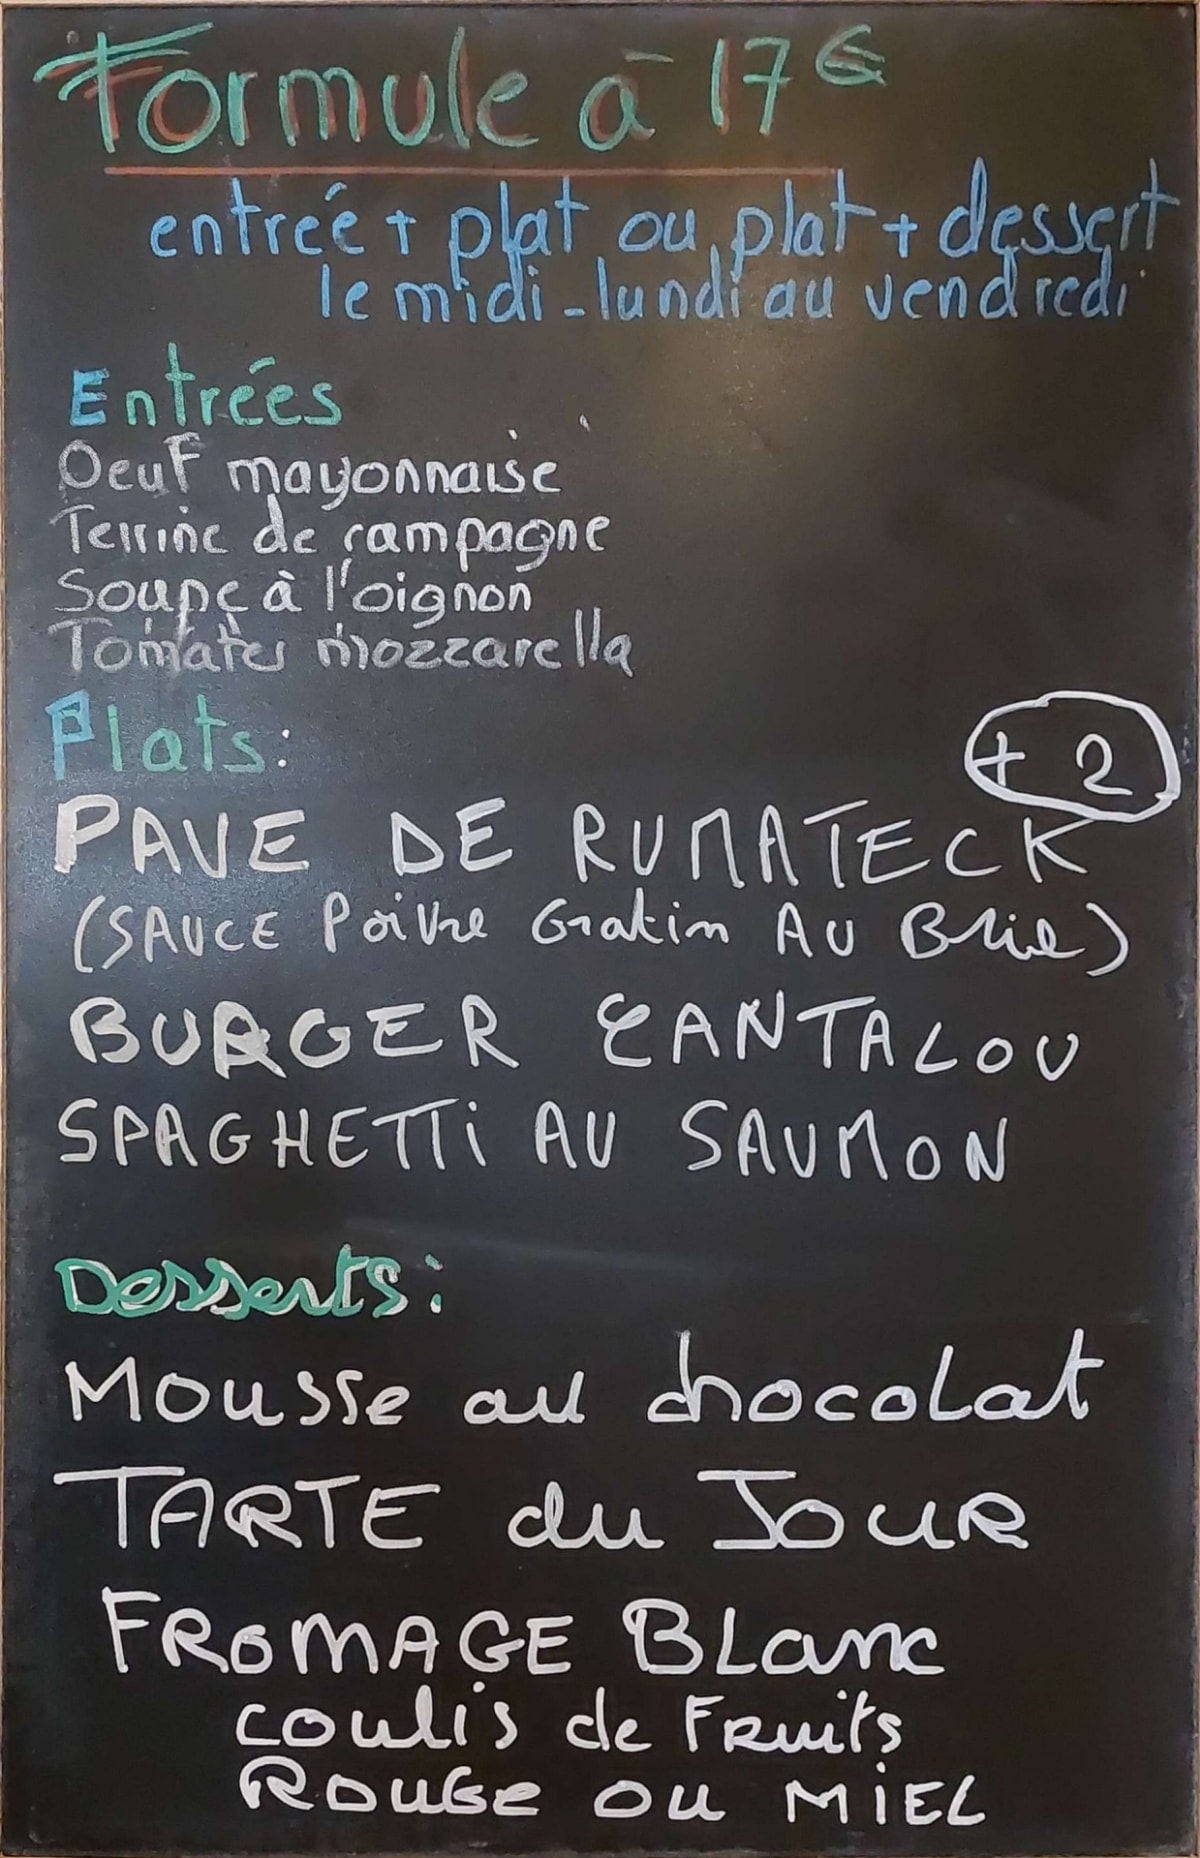 Formule à 17€
entrée + plat ou plat + dessert
le midi - lundi au vendredi
Entrées
Oeuf mayonnaise
Terrine de campagne
Soupe à l'oignon
Tomates mozzarella
Plats:
+ 2
PAVE DE RUMATECK
(SAUCE Poivre Gratin AU Brie)
BURGER CANTALOU
SPAGHETTi AU SAUMON
Desserts:
Mousse au chocolat
TARTE du JOUR
FROMAGE BLanc
coulis de Fruits
ROUGE ou MiEL